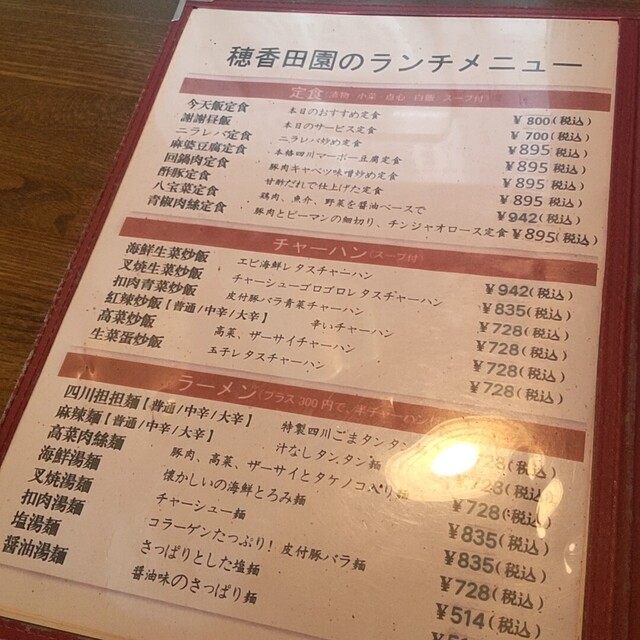 穂香田園のランチメニュー
定食(漬物・小菜・点心 白飯・スープ付)
今天飯定食 本日のおすすめ定食 ¥800(税込)
謝謝昼飯 本日のサービス定食 ¥700(税込)
ニラレバ定食 ニラレバ炒め定食 ¥895(税込)
麻婆豆腐定食 本格四川マーボー豆腐定食 ¥895(税込)
回鍋肉定食 豚肉キャベツ味噌炒め定食 ¥895(税込)
酢豚定食 甘酢だれで仕上げた定食 ¥895(税込)
八宝菜定食 鶏肉、魚介、野菜を醤油ベースで ¥942(税込)
青椒肉絲定食 豚肉とピーマンの細切り、チンジャオロース定食 ¥895(税込)
チャーハン(スープ付)
海鮮生菜炒飯 エビ海鮮レタスチャーハン ¥942(税込)
叉焼生菜炒飯 チャーシューゴロゴロレタスチャーハン ¥835(税込)
扣肉青菜炒飯 皮付豚バラ青菜チャーハン ¥728(税込)
紅辣炒飯【普通/中辛/大辛】 辛いチャーハン ¥728(税込)
高菜炒飯 高菜、ザーサイチャーハン ¥728(税込)
生菜蛋炒飯 玉子レタスチャーハン ¥728(税込)
ラーメン(プラス300円で、半チャーハン
四川担担麺【普通/中辛/大辛】 特製四川ごまタンタン 728(税込)
麻辣麺【普通/中辛/大辛】 汁なしタンタン麺 ¥728(税込)
高菜肉絲麺 豚肉、高菜、ザーサイとタケノコ入り麺 ¥728(税込)
海鮮湯麺 懐かしいの海鮮とろみ麺 ¥835(税込)
叉焼湯麺 チャーシュー麺 ¥835(税込)
扣肉湯麺 コラーゲンたっぷり!皮付豚バラ麺 ¥728(税込)
塩湯麺 さっぱりとした塩麺 ¥514(税込)
醤油湯麺 醤油味のさっぱり麺